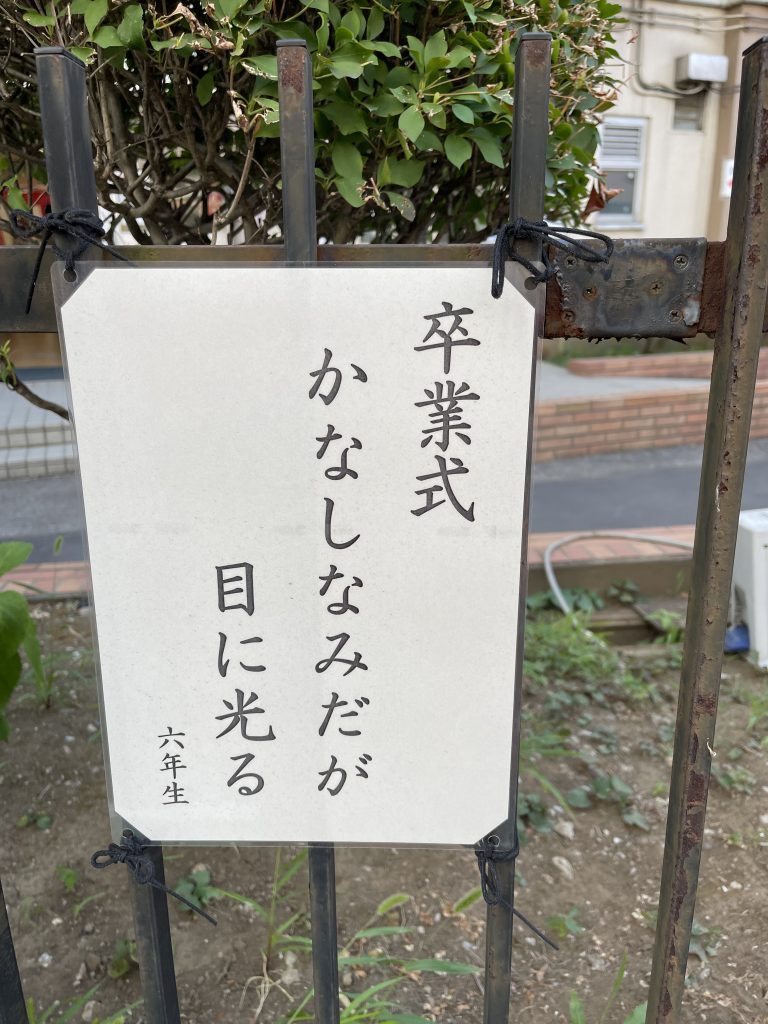 卒業式
かなしなみだが
目に光る
六年生